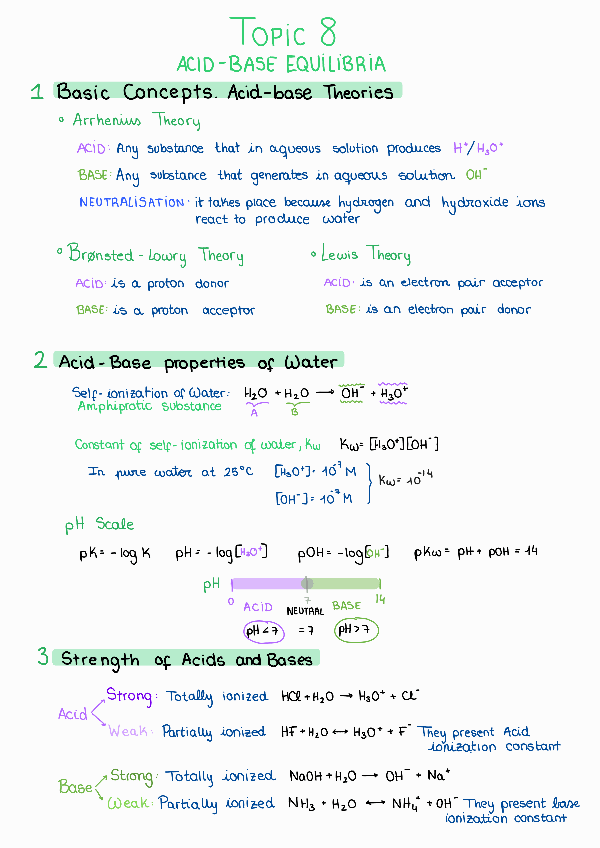 Topic 8
ACID-BASE EQUILIBRIA
1 Basic Concepts. Acid-base Theories
° Arrhenius Theory
ACID: Any substance that in aqueous solution produces H⁺/H₃O⁺
BASE: Any substance that generates in aqueous solution OH⁻
NEUTRALISATION: it takes place because hydrogen and hydroxide ions
react to produce water
° Brønsted-Lowry Theory
ACID: is a proton donor
BASE: is a proton acceptor
° Lewis Theory
ACID: is an electron pair acceptor
BASE: is an electron pair donor
2 Acid-Base properties of Water
Self-ionization of Water: H₂O + H₂O → OH⁻ + H₃O⁺
Amphiprotic substance A B
Constant of self-ionization of water, Kw Kw= [H₃O⁺][OH⁻]
In pure water at 25°C [H₃O⁺]= 10⁻⁷ M
[OH⁻]= 10⁻⁷ M
Kw= 10⁻¹⁴
pH Scale
pK= -log K pH= -log[H₃O⁺] pOH= -log[OH⁻] pKw= pH + pOH = 14
pH
0 7 14
ACID NEUTRAL BASE
pH<7 =7 pH>7
3 Strength of Acids and Bases
Acid
Strong: Totally ionized HCl + H₂O → H₃O⁺ + Cl⁻
Weak: Partially ionized HF + H₂O ↔ H₃O⁺ + F⁻ They present Acid
ionization constant
Base
Strong: Totally ionized NaOH + H₂O → OH⁻ + Na⁺
Weak: Partially ionized NH₃ + H₂O ↔ NH₄⁺ + OH⁻ They present base
ionization constant